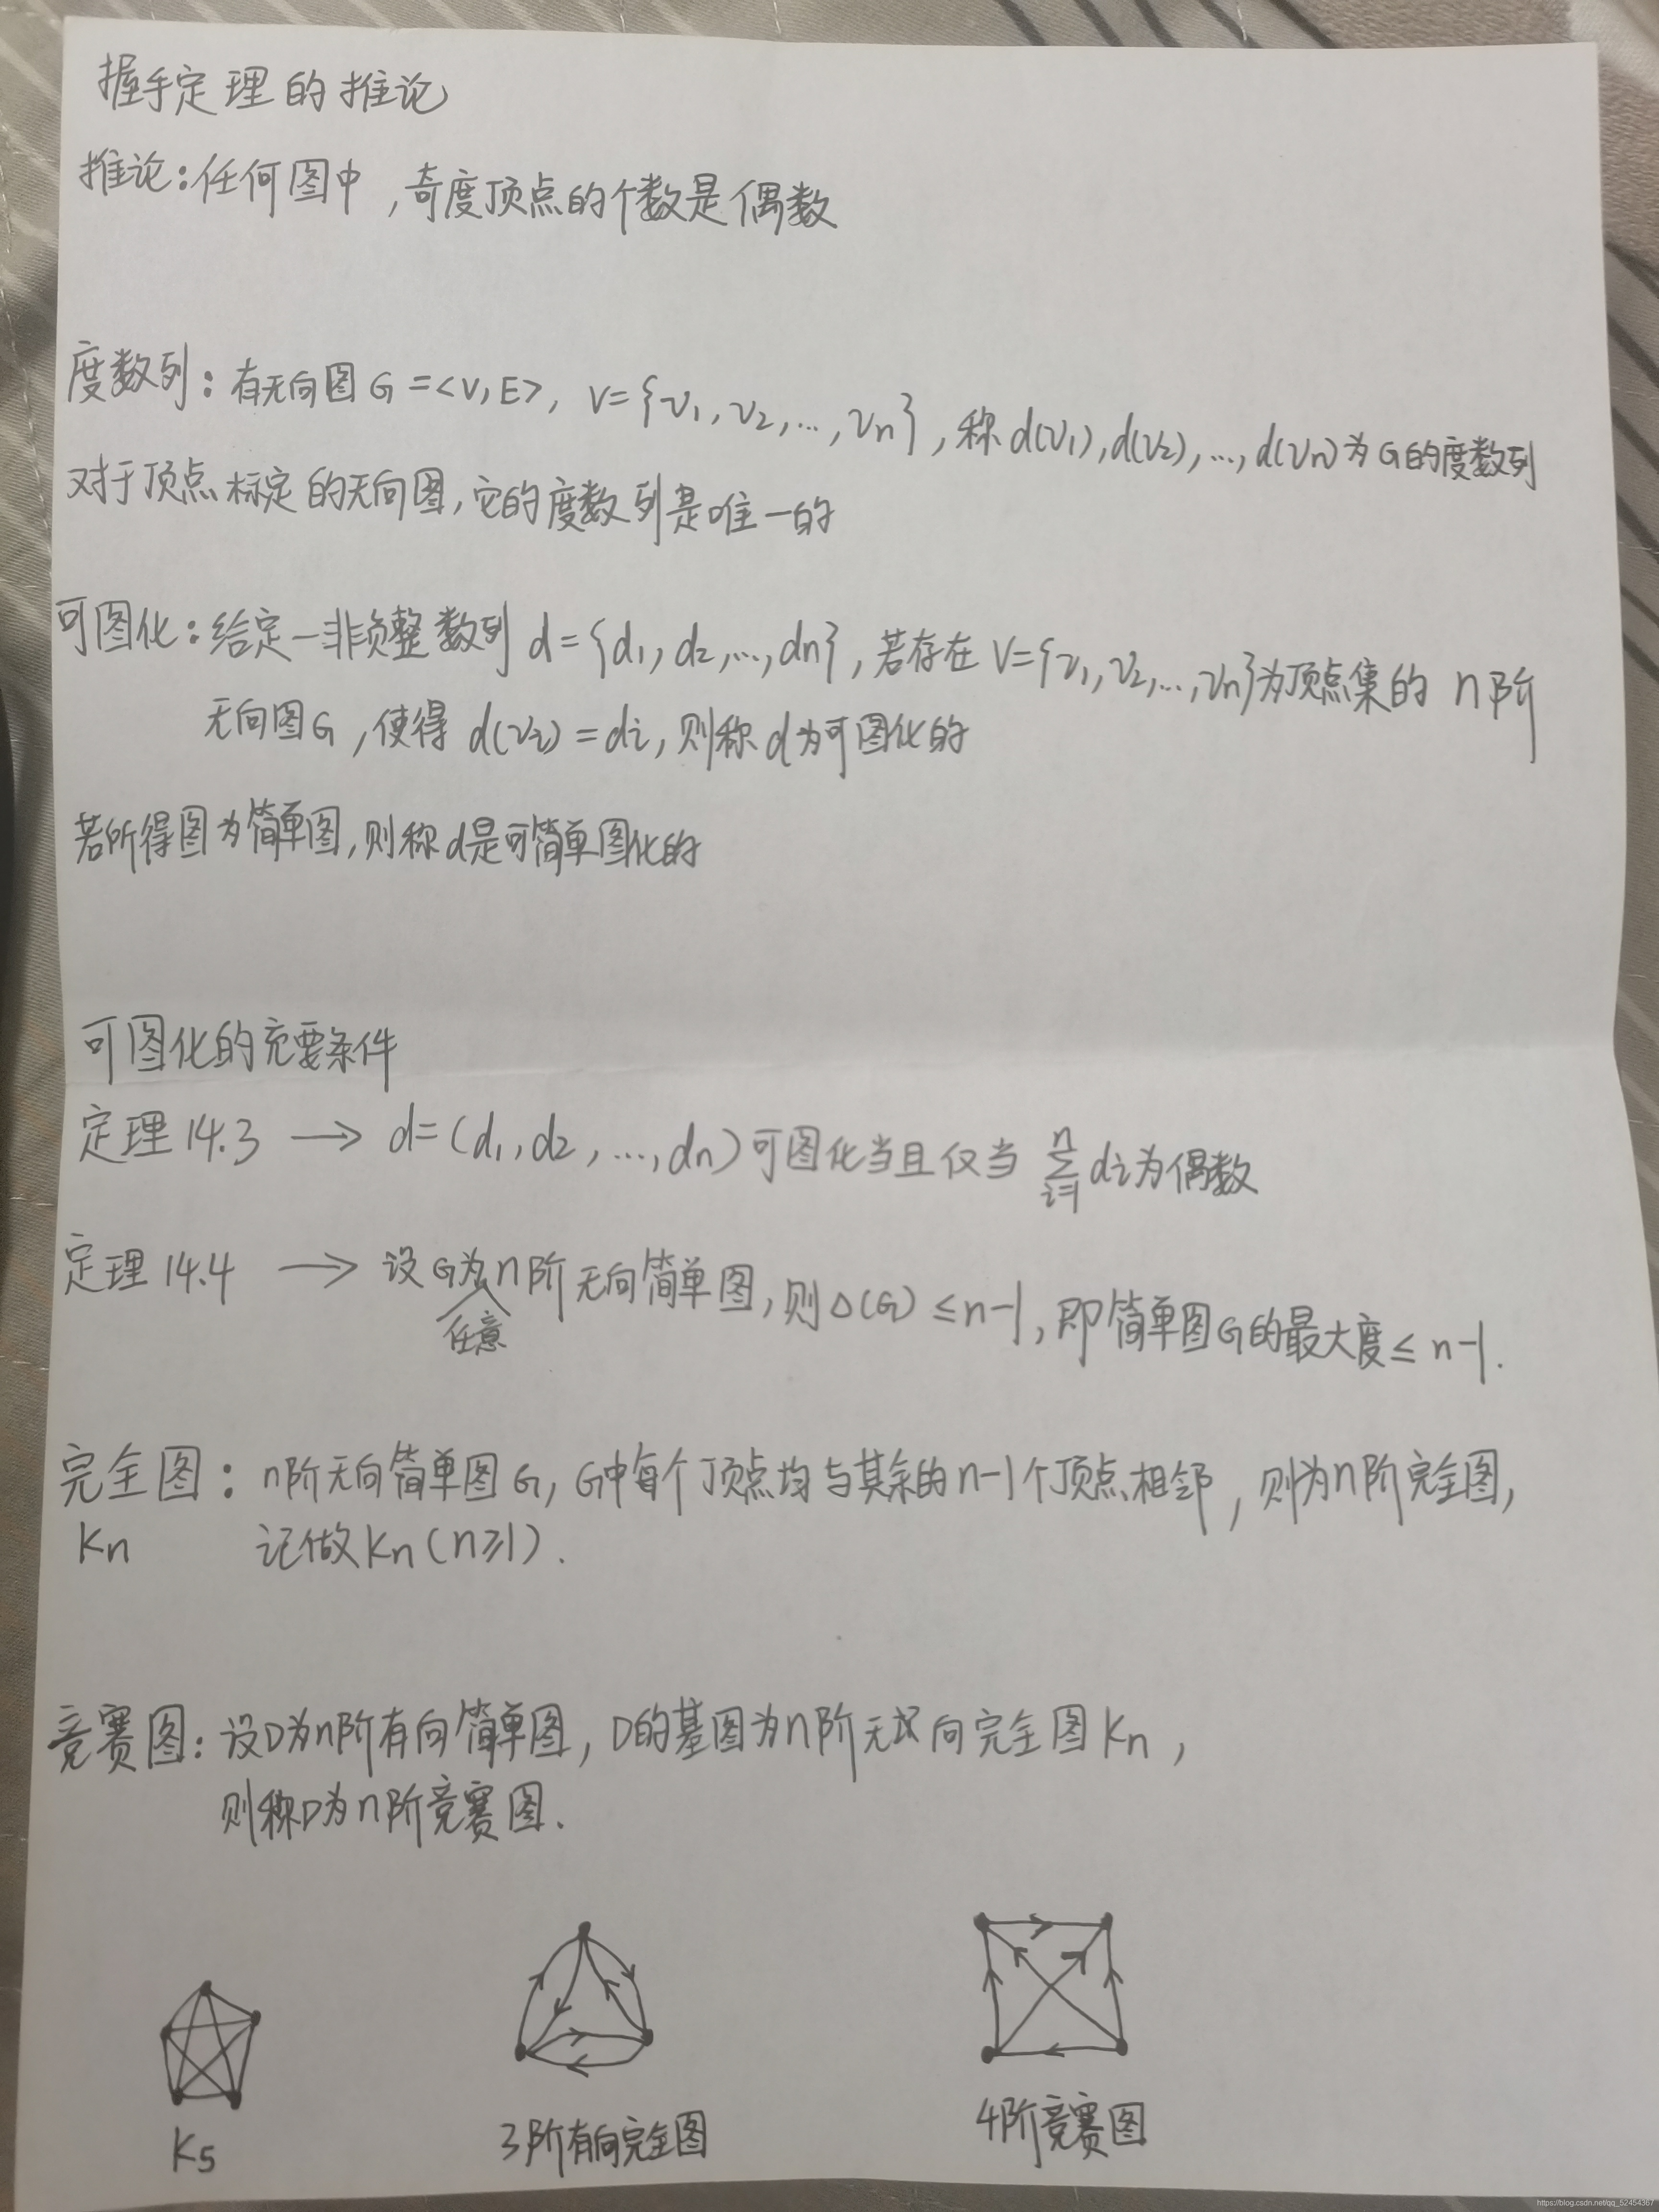 握手定理的推论
推论:任何图中,奇度顶点的个数是偶数
度数列:有无向图G=<V,E>, V={v1,v2,...,vn},称d(v1),d(v2),...,d(vn)为G的度数列
对于顶点标定的无向图,它的度数列是唯一的
可图化:给定一非负整数列d={d1,d2,...,dn},若存在V={v1,v2,...,vn}为顶点集的 n阶
无向图G,使得d(vi)=di,则称d为可图化的
若所得图为简单图,则称d是可简单图化的
可图化的充要条件
定理14.3 → d=(d1,d2,...,dn)可图化当且仅当 ∑_{i=1}^{n} di为偶数
定理14.4 → 设G为任意n阶无向简单图,则Δ(G)≤n-1,即简单图G的最大度≤n-1.
完全图:n阶无向简单图G,G中每个顶点均与其余的n-1个顶点相邻,则为n阶完全图,
Kn 记做Kn(n≥1).
竞赛图:设D为n阶有向简单图,D的基图为n阶无向完全图Kn,
则称D为n阶竞赛图.
K5
3阶有向完全图
4阶竞赛图
https://blog.csdn.net/qq_52454367